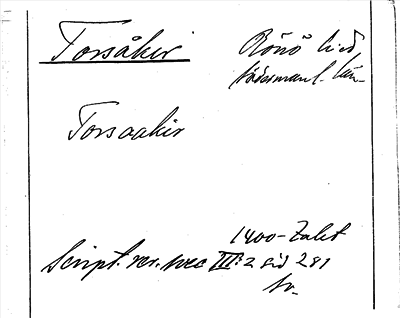 Torsåker
Rönö hd
Södermanl. län
Torsaakir
1400-talet
Script. rer. svec III:2 sid 281